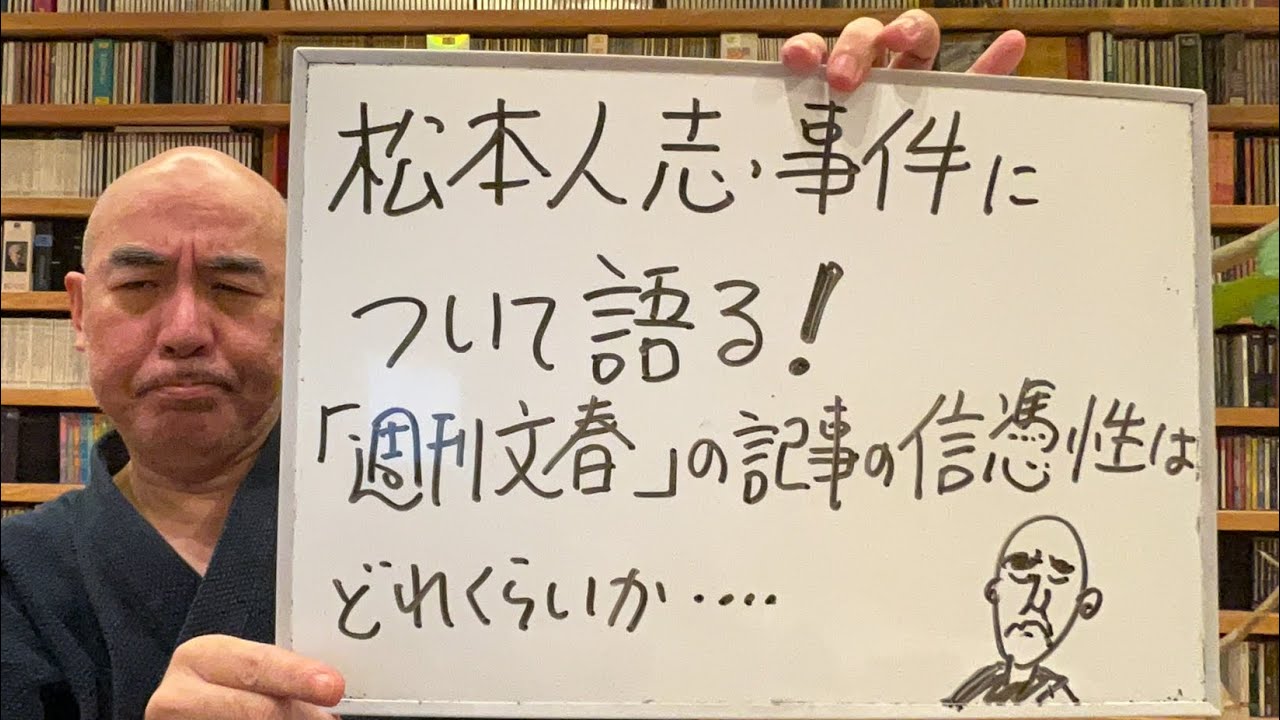 松本人志・事件に
ついて語る!
「週刊文春」の記事の信憑性は
どれくらいか・・・・・